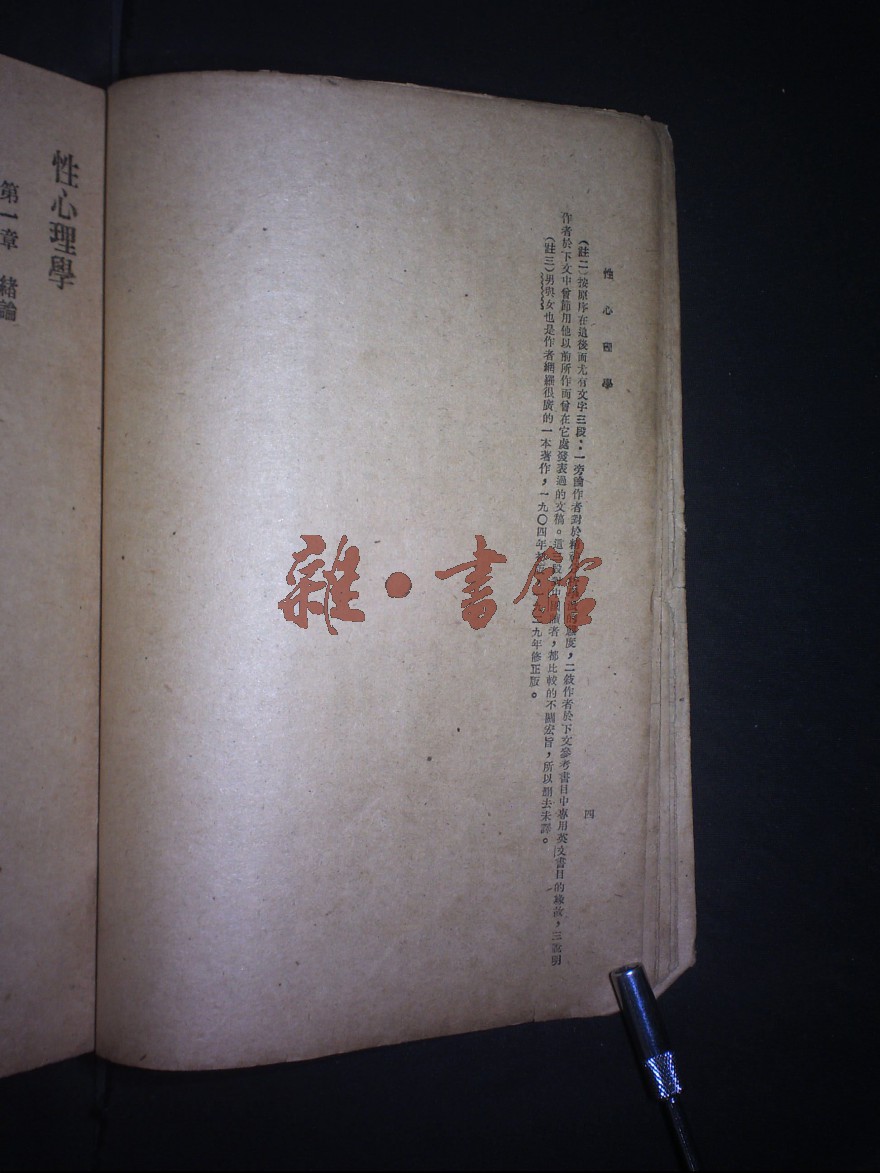 性心理學
四
(註二)按原序在這後面尤有文字三段:一旁論作者對於精
度,二敍作者於下文參考書目中專用英文書目的緣故,三說明
作者於下文中曾節用他以前所作而曾在它處發表過的文稿。這
讀者,都比較的不關宏旨,所以刪去未譯。
(註三)男與女也是作者網羅很廣的一本著作,一九〇四年
九年修正版。
性心理學
第一章 緒論
雜·書館